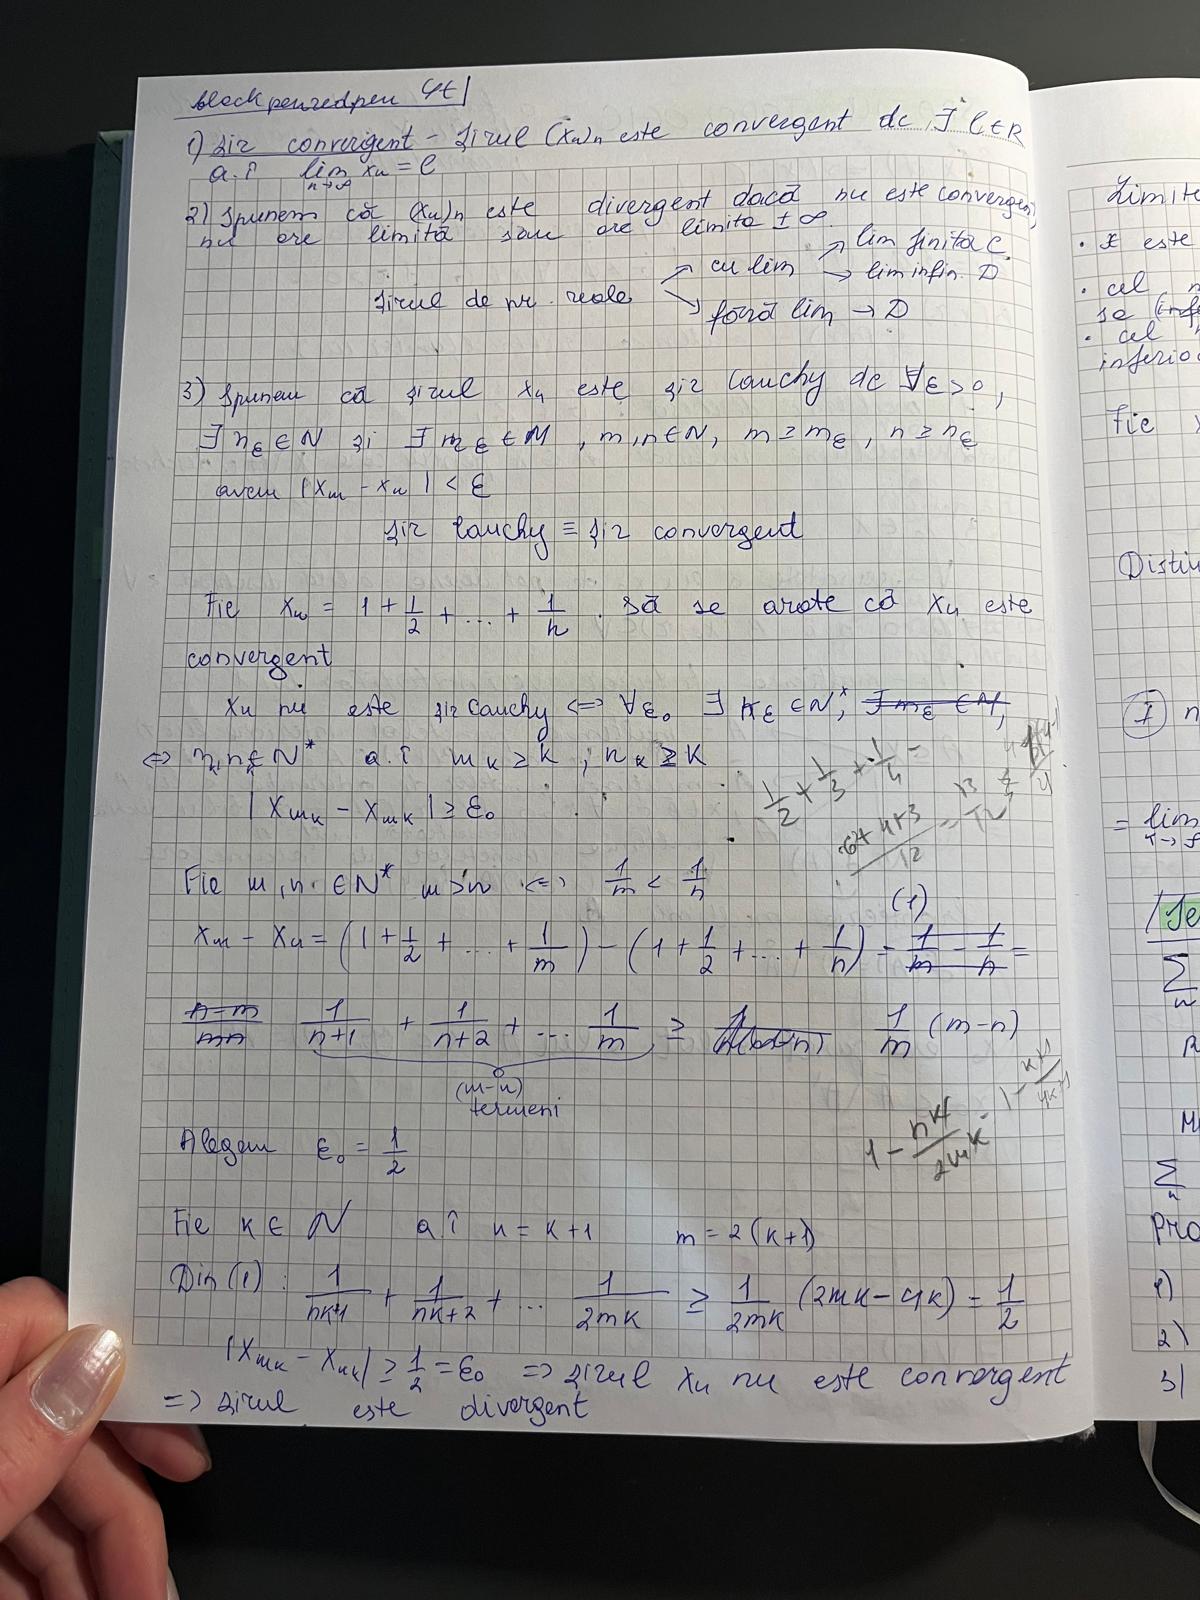 blackpenredpen yt
1) Șir convergent - Șirul (xn)n este convergent dc ∃ l ∈ R
a.î lim n→∞ xn = l
2) Spunem că (xn)n este divergent dacă nu este convergent,
nu are limită sau are limita ±∞.
Șirul de nr. reale
cu lim
lim finită C.
lim infin. D
fără lim → D
3) Spunem că șirul xn este șir Cauchy dc ∀ε > 0,
∃ nε ∈ N și ∃ mε ∈ N, m,n ∈ N, m ≥ mε, n ≥ nε
avem |xm - xn| < ε
șir Cauchy ≡ șir convergent
Fie xn = 1 + 1/2 + ... + 1/n. Să se arate că xn este
convergent
xn nu este șir Cauchy <=> ∀ε0 ∃ kε ∈ N*, ∃ mε ∈ N,
a.î mk ≥ k ; nk ≥ k
|xmk - xmk| ≥ ε0
1/2 + 1/3 + 1/4 =
6+4+3/12 = 13/12
Fie m,n ∈ N* m > n <=> 1/m < 1/n
(1)
xm - xn = (1 + 1/2 + ... + 1/m) - (1 + 1/2 + ... + 1/n) = 1/m - 1/n =
n-m/mn 1/n+1 + 1/n+2 + ... 1/m ≥ 1/m (m-n)
(m-n)
termeni
Alegem ε0 = 1/2
1 - nk/2mk
Fie k ∈ N aî n = k+1 m = 2(k+1)
Din (1): 1/nk+1 + 1/nk+2 + ... 1/2mk ≥ 1/2mk (2mk - nk) = 1/2
|xmk - xnk| ≥ 1/2 = ε0 => șirul xn nu este convergent
=> șirul este divergent
Limite
• x este
• cel
se
• cel
inferio
Fie
Distin
I
= lim
∑
n
∑
n
1)
2)
3)